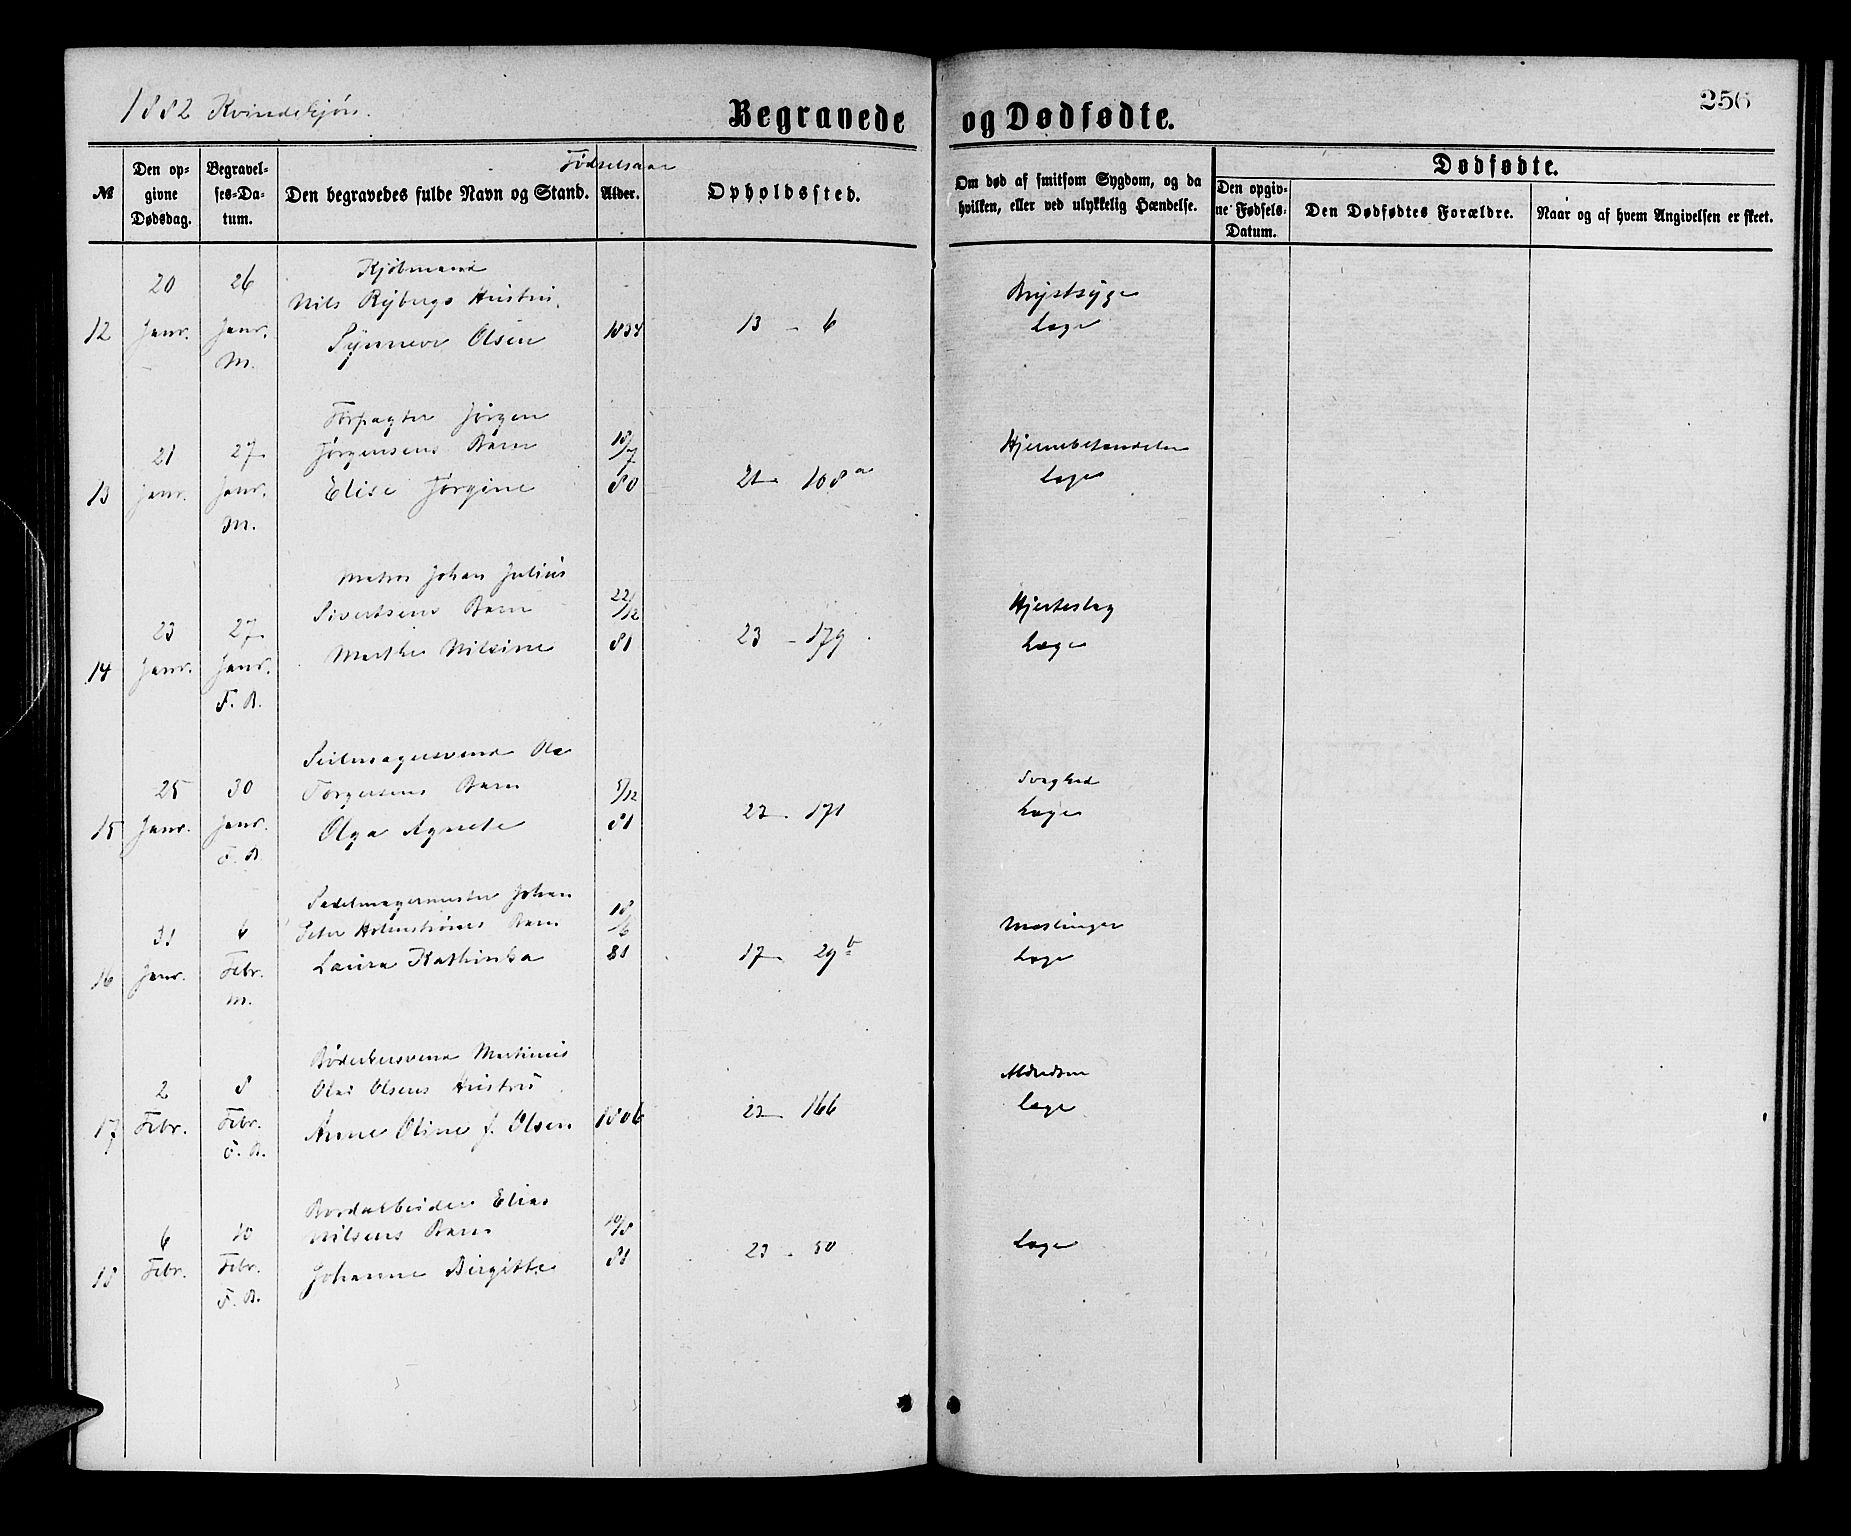 1882 Kvindekjøn.
Begravede og Dødfødte.
256
№
Den opgivne Dødsdag.
Begravelses-Datum.
Den begravedes fulde Navn og Stand.
Fødselsaar
Alder.
Opholdssted.
Om død af smitsom Sygdom, og da
hvilken, eller ved ulykkelig Hændelse.
Dødfødte.
Den opgivne Fødsels-Datum.
Den Dødfødtes Forældre.
Naar og af hvem Angivelsen er skeet.
12
20 Janr.
26 Janr. M.
Kjøbmand
Nils Rybergs Hustru
Synneve Olsen
1834
13 - 6
Brystsyge
Læge
13
21 Janr.
27 Janr. M.
Forpagter Jørgen
Jørgensens Barn
Elise Jørgine
18/7 80
21 - 108 a
Hjernebetændelse
Læge
14
23 Janr.
27 Janr. F. B.
Matros Johan Julius
Sivertsens Barn
Marthe Nilsine
22/12 81
23 - 179
Hjerteslag
Læge
15
25 Janr.
30 Janr. F. B.
Seilmagersvend Ole
Torgersens Barn
Olga Agnete
5/12 81
23 - 171
Svaghed
Læge
16
31 Janr.
4 Febr. M.
Sadelmagermester Johan
Peter Holmstrøms Barn
Laura Kathinka
18/6 81
17 - 29 b
Mæslinger
Læge
17
2 Febr.
8 Febr. F. B.
Bødkersvend Martinus
Olai Olsens Hustru
Anne Oline f. Olsen
1806
23 - 166
Alderdom
Læge
18
6 Febr.
10 Febr. F. B.
Bordarbeider Elias
Nilsens Barn
Johanne Birgitte
10/8 81
23 - 50
Læge